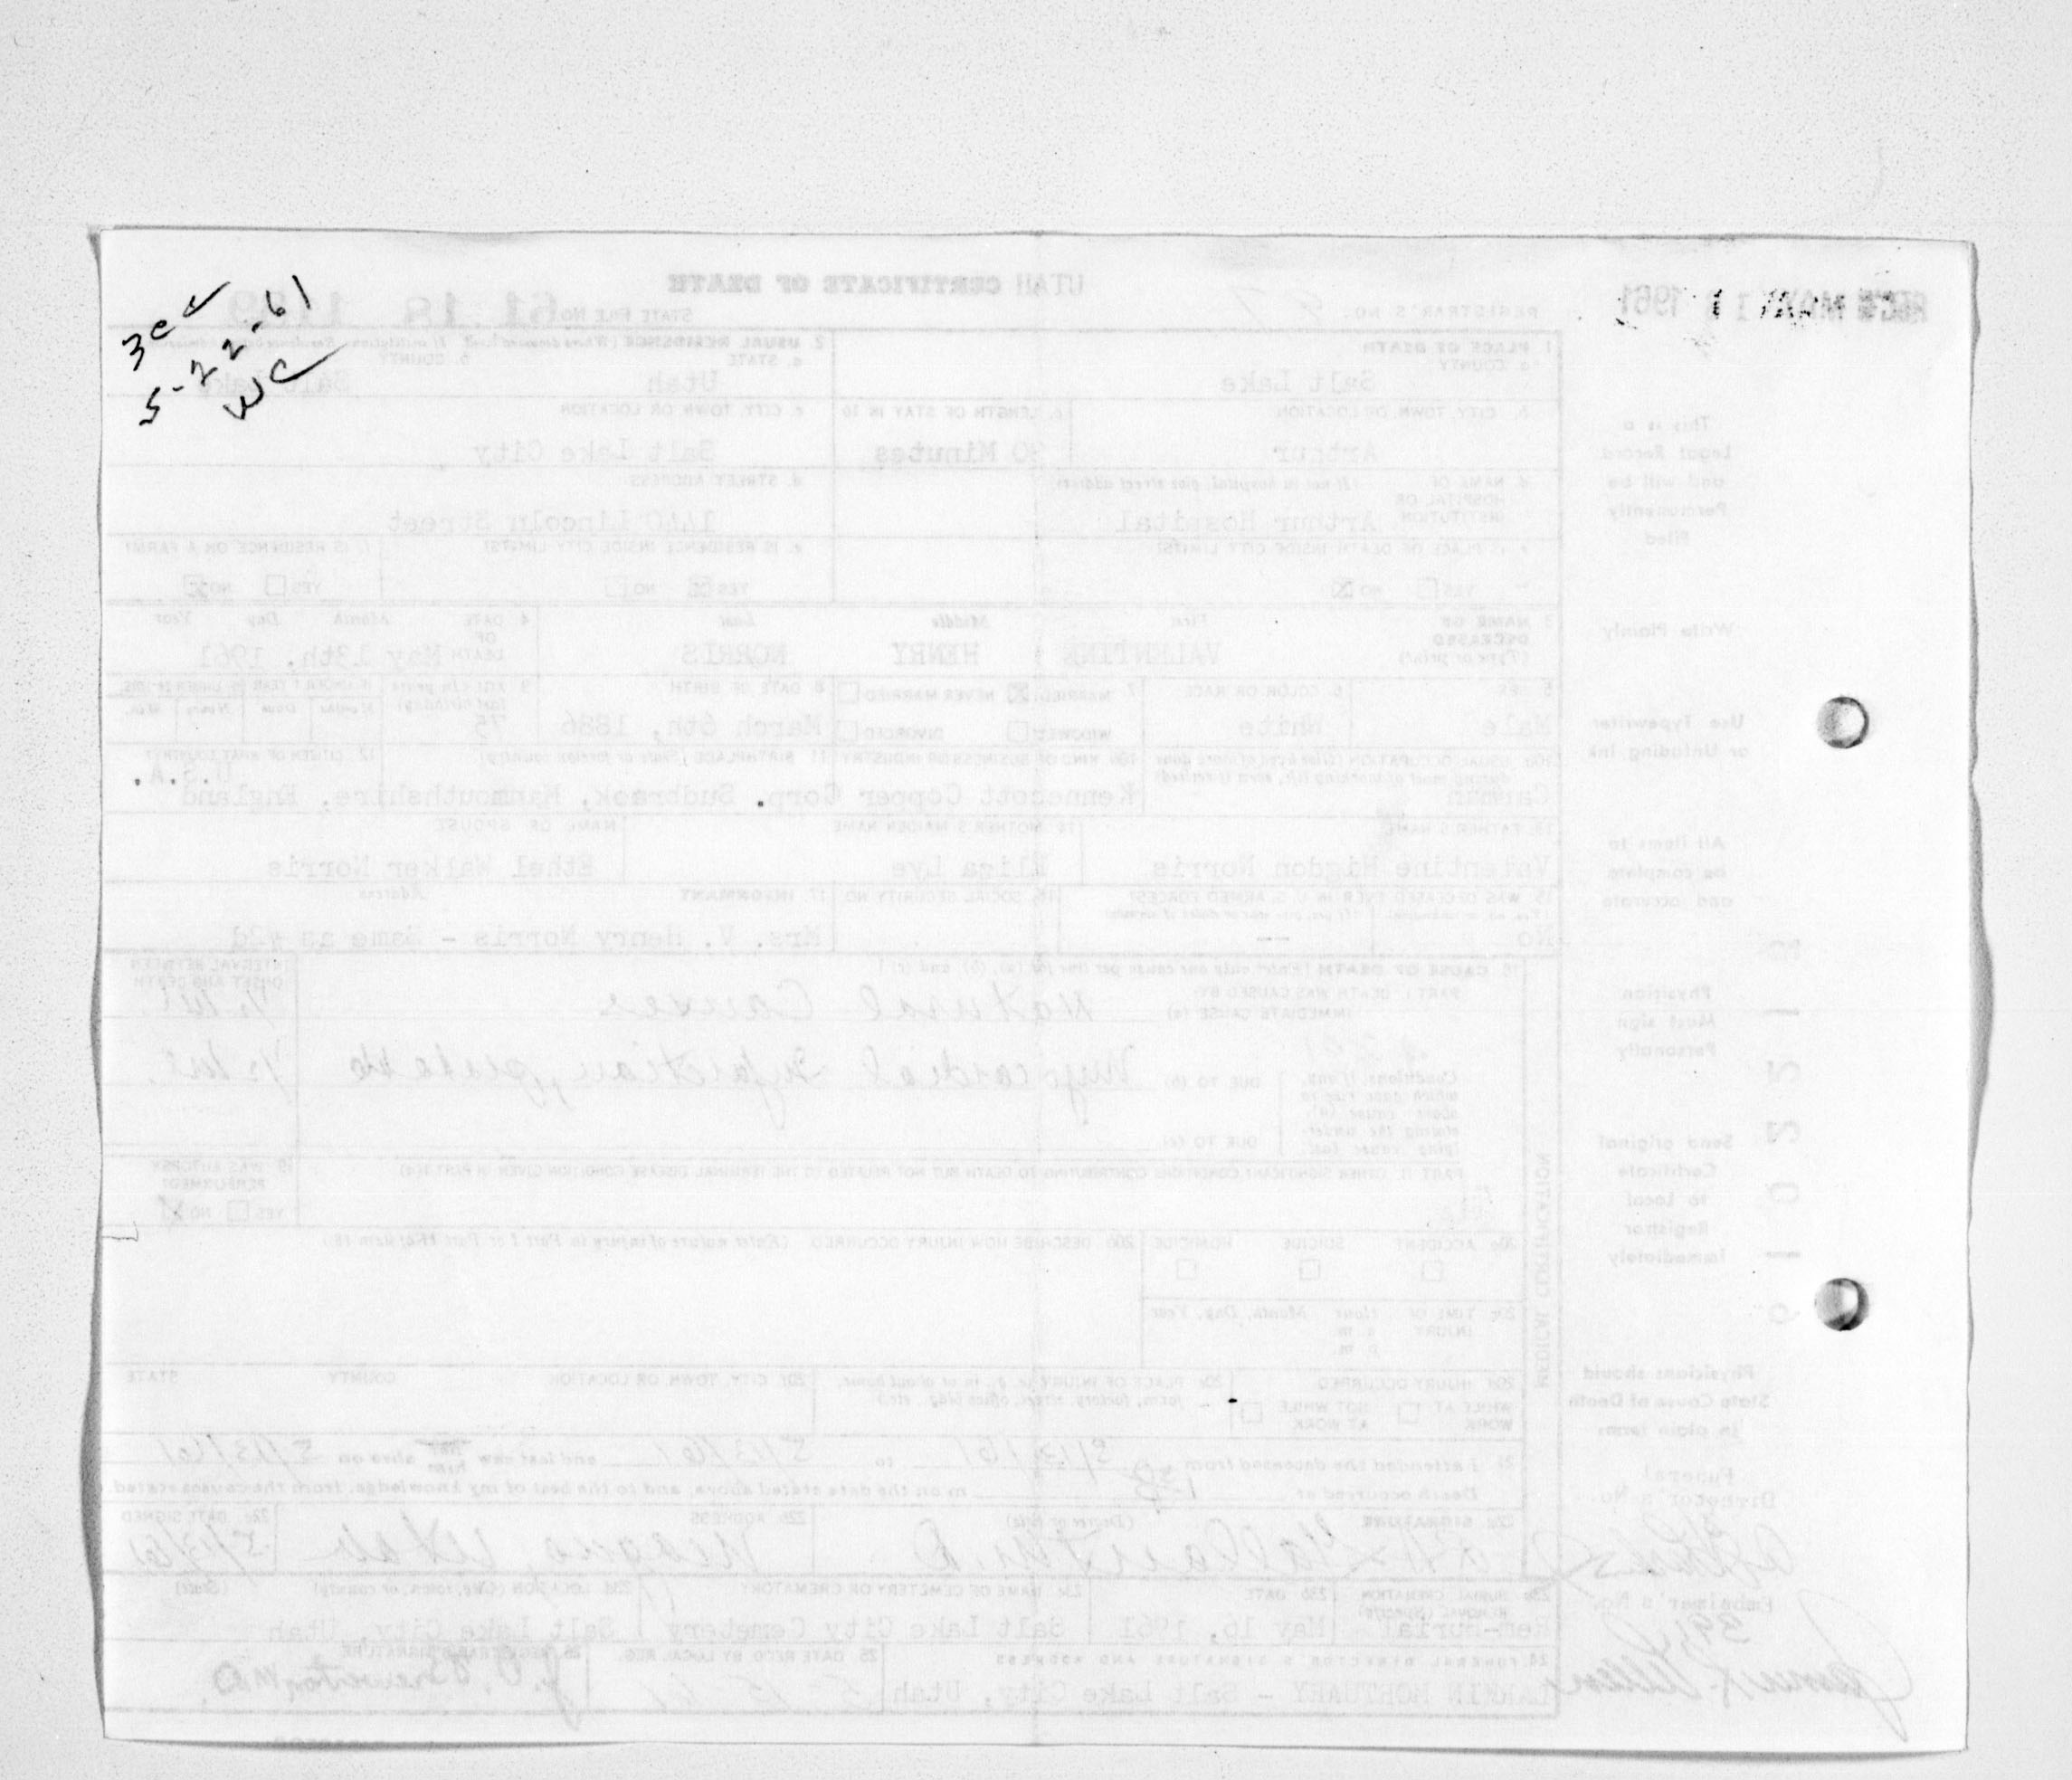 3cc ✓
5-22-61
WC
UTAH CERTIFICATE OF DEATH
REGISTRAR'S NO. 97
STATE FILE NO. 61 18
1961
1. PLACE OF DEATH
a. COUNTY
Salt Lake
2. USUAL RESIDENCE
a. STATE
Utah
b. COUNTY
Salt Lake
b. CITY, TOWN, OR LOCATION
Arthur
c. LENGTH OF STAY IN 1b
Minutes
c. CITY, TOWN OR LOCATION
Salt Lake City
d. NAME OF HOSPITAL OR INSTITUTION (If not in hospital, give street address)
Arthur Hospital
d. STREET ADDRESS
1440 Lincoln Street
e. IS PLACE OF DEATH INSIDE CITY LIMITS?
YES NO
e. IS RESIDENCE INSIDE CITY LIMITS?
YES NO
f. IS RESIDENCE ON A FARM?
YES NO
3. NAME OF DECEASED (Type or print)
First Middle Last
VALENTINE HENRY NORRIS
4. DATE OF DEATH
Month Day Year
May 13th, 1961
5. SEX
Male
6. COLOR OR RACE
White
7. MARRIED NEVER MARRIED
WIDOWED DIVORCED
8. DATE OF BIRTH
March 6th, 1886
9. AGE (In years last birthday)
75
10a. USUAL OCCUPATION
Carman
10b. KIND OF BUSINESS OR INDUSTRY
Kennecott Copper Corp.
11. BIRTHPLACE (State or foreign country)
Sudbrook, Manmouthshire, England
12. CITIZEN OF WHAT COUNTRY
U.S.A.
13. FATHER'S NAME
Valentine Higdon Norris
14. MOTHER'S MAIDEN NAME
Eliza Lye
NAME OF SPOUSE
Ethel Walker Norris
15. WAS DECEASED EVER IN U. S. ARMED FORCES?
No --
16. SOCIAL SECURITY NO.
17. INFORMANT Address
Mrs. V. Henry Norris - Same as #2d
18. CAUSE OF DEATH (Enter only one cause per line for (a), (b), and (c))
PART I. DEATH WAS CAUSED BY:
IMMEDIATE CAUSE (a)
Natural Causes
INTERVAL BETWEEN ONSET AND DEATH
½ hr.
DUE TO (b)
Myocardial Infarction,
½ hr.
Conditions, if any, which gave rise to above cause (a), stating the underlying cause last.
DUE TO (c)
PART II. OTHER SIGNIFICANT CONDITIONS CONTRIBUTING TO DEATH BUT NOT RELATED TO THE TERMINAL DISEASE CONDITION GIVEN IN PART I(a)
19. WAS AUTOPSY PERFORMED?
YES NO
20a. ACCIDENT SUICIDE HOMICIDE
20b. DESCRIBE HOW INJURY OCCURRED (Enter nature of injury in Part I or Part II of item 18)
20c. TIME OF INJURY Hour Month, Day, Year
a. m.
p. m.
20d. INJURY OCCURRED
WHILE AT WORK NOT WHILE AT WORK
20e. PLACE OF INJURY (e. g., in or about home, farm, factory, street, office bldg., etc.)
20f. CITY, TOWN, OR LOCATION COUNTY STATE
21. I attended the deceased from 5/13/61 to 5/13/61 and last saw him alive on 5/13/61
Death occurred at m on the date stated above, and to the best of my knowledge, from the causes stated.
22a. SIGNATURE (Degree or title)
M.D.
22b. ADDRESS
Magna, Utah
22c. DATE SIGNED
23a. BURIAL, CREMATION, REMOVAL (Specify)
Rem-Burial
23b. DATE
May 16, 1961
23c. NAME OF CEMETERY OR CREMATORY
Salt Lake City Cemetery
23d. LOCATION (City, town, or county) (State)
Salt Lake City, Utah
24. FUNERAL DIRECTOR'S SIGNATURE AND ADDRESS
LARKIN MORTUARY - Salt Lake City, Utah
25. DATE REC'D BY LOCAL REG.
26. REGISTRAR'S SIGNATURE
MEDICAL CERTIFICATION
This is a
Legal Record
and will be
Permanently
Filed
Write Plainly
Use Typewriter
or Unfading Ink
All items to
be complete
and accurate
Physician
Must sign
Personally
Send original
Certificate
to Local
Registrar
Immediately
Physicians should
State Cause of Death
in plain terms
Funeral
Director's No.
Embalmer's No.